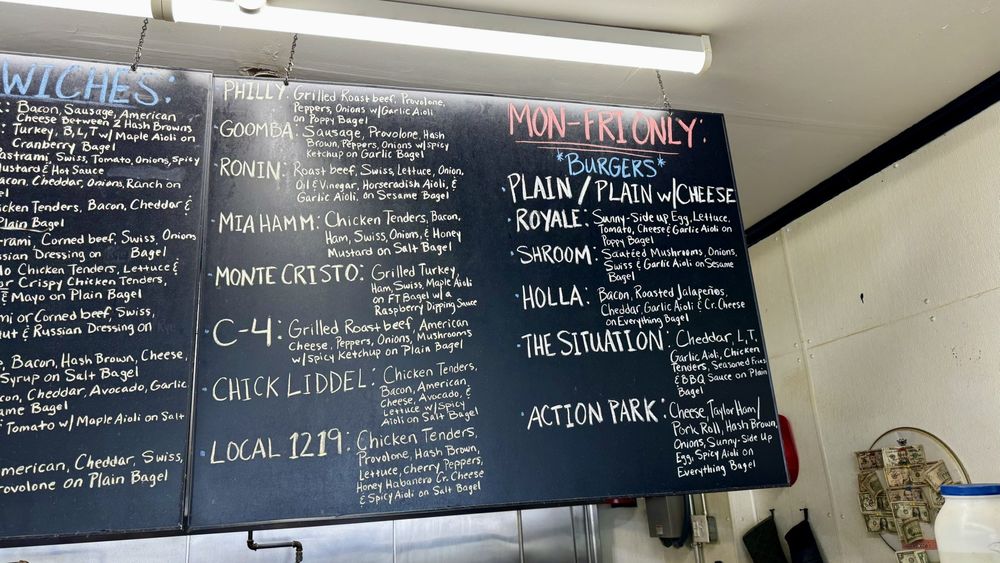 WICHES:
: Bacon, Sausage, American
Cheese Between 2 Hash Browns
: Turkey, B, L, T w/ Maple Aioli on
Cranberry Bagel
astrami, Swiss, Tomato, Onions, Spicy
Mustard & Hot Sauce
acon, Cheddar, Onions, Ranch on
el
icken Tenders, Bacon, Cheddar &
Plain Bagel
rami, Corned beef, Swiss, Onions
ussian Dressing on Bagel
lo Chicken Tenders, Lettuce &
or Crispy Chicken Tenders,
& Mayo on Plain Bagel
mi or Corned beef, Swiss,
ut & Russian Dressing on
, Bacon, Hash Brown, Cheese,
Syrup on Salt Bagel
con, Cheddar, Avocado, Garlic
ame Bagel
Tomato w/ Maple Aioli on Salt
merican, Cheddar, Swiss,
rovolone on Plain Bagel
PHILLY: Grilled Roast beef, Provolone,
Peppers, Onions w/ Garlic Aioli
on Poppy Bagel
GOOMBA: Sausage, Provolone, Hash
Brown, Peppers, Onions w/ spicy
Ketchup on Garlic Bagel
RONIN: Roast beef, Swiss, Lettuce, Onion,
Oil & Vinegar, Horseradish Aioli, &
Garlic Aioli, on Sesame Bagel
MIA HAMM: Chicken Tenders, Bacon,
Ham, Swiss, Onions, & Honey
Mustard on Salt Bagel
MONTE CRISTO: Grilled Turkey,
Ham, Swiss, Maple Aioli
on FT Bagel w/ a
Raspberry Dipping Sauce
C-4: Grilled Roast beef, American
Cheese, Peppers, Onions, Mushrooms
w/ spicy Ketchup on Plain Bagel
CHICK LIDDEL: Chicken Tenders,
Bacon, American,
Cheese, Avocado, &
Lettuce w/ Spicy
Aioli on Salt Bagel
LOCAL 1219: Chicken Tenders,
Provolone, Hash Brown,
Lettuce, cherry Peppers,
Honey Habanero Cr. Cheese
& Spicy Aioli on Salt Bagel
MON-FRI ONLY:
*BURGERS*
PLAIN / PLAIN w/ CHEESE
ROYALE: Sunny-Side up Egg, Lettuce,
Tomato, Cheese & Garlic Aioli on
Poppy Bagel
SHROOM: Sautéed Mushrooms, Onions,
Swiss & Garlic Aioli on Sesame
Bagel
HOLLA: Bacon, Roasted Jalapeños,
Cheddar, Garlic Aioli & Cr. Cheese
on Everything Bagel
THE SITUATION: Cheddar, L, T,
Garlic Aioli, Chicken
Tenders, Seasoned Fries
& BBQ Sauce on Plain
Bagel
ACTION PARK: Cheese, Taylor Ham/
Pork Roll, Hash Brown,
Onions, Sunny-Side Up
Egg, Spicy Aioli on
Everything Bagel